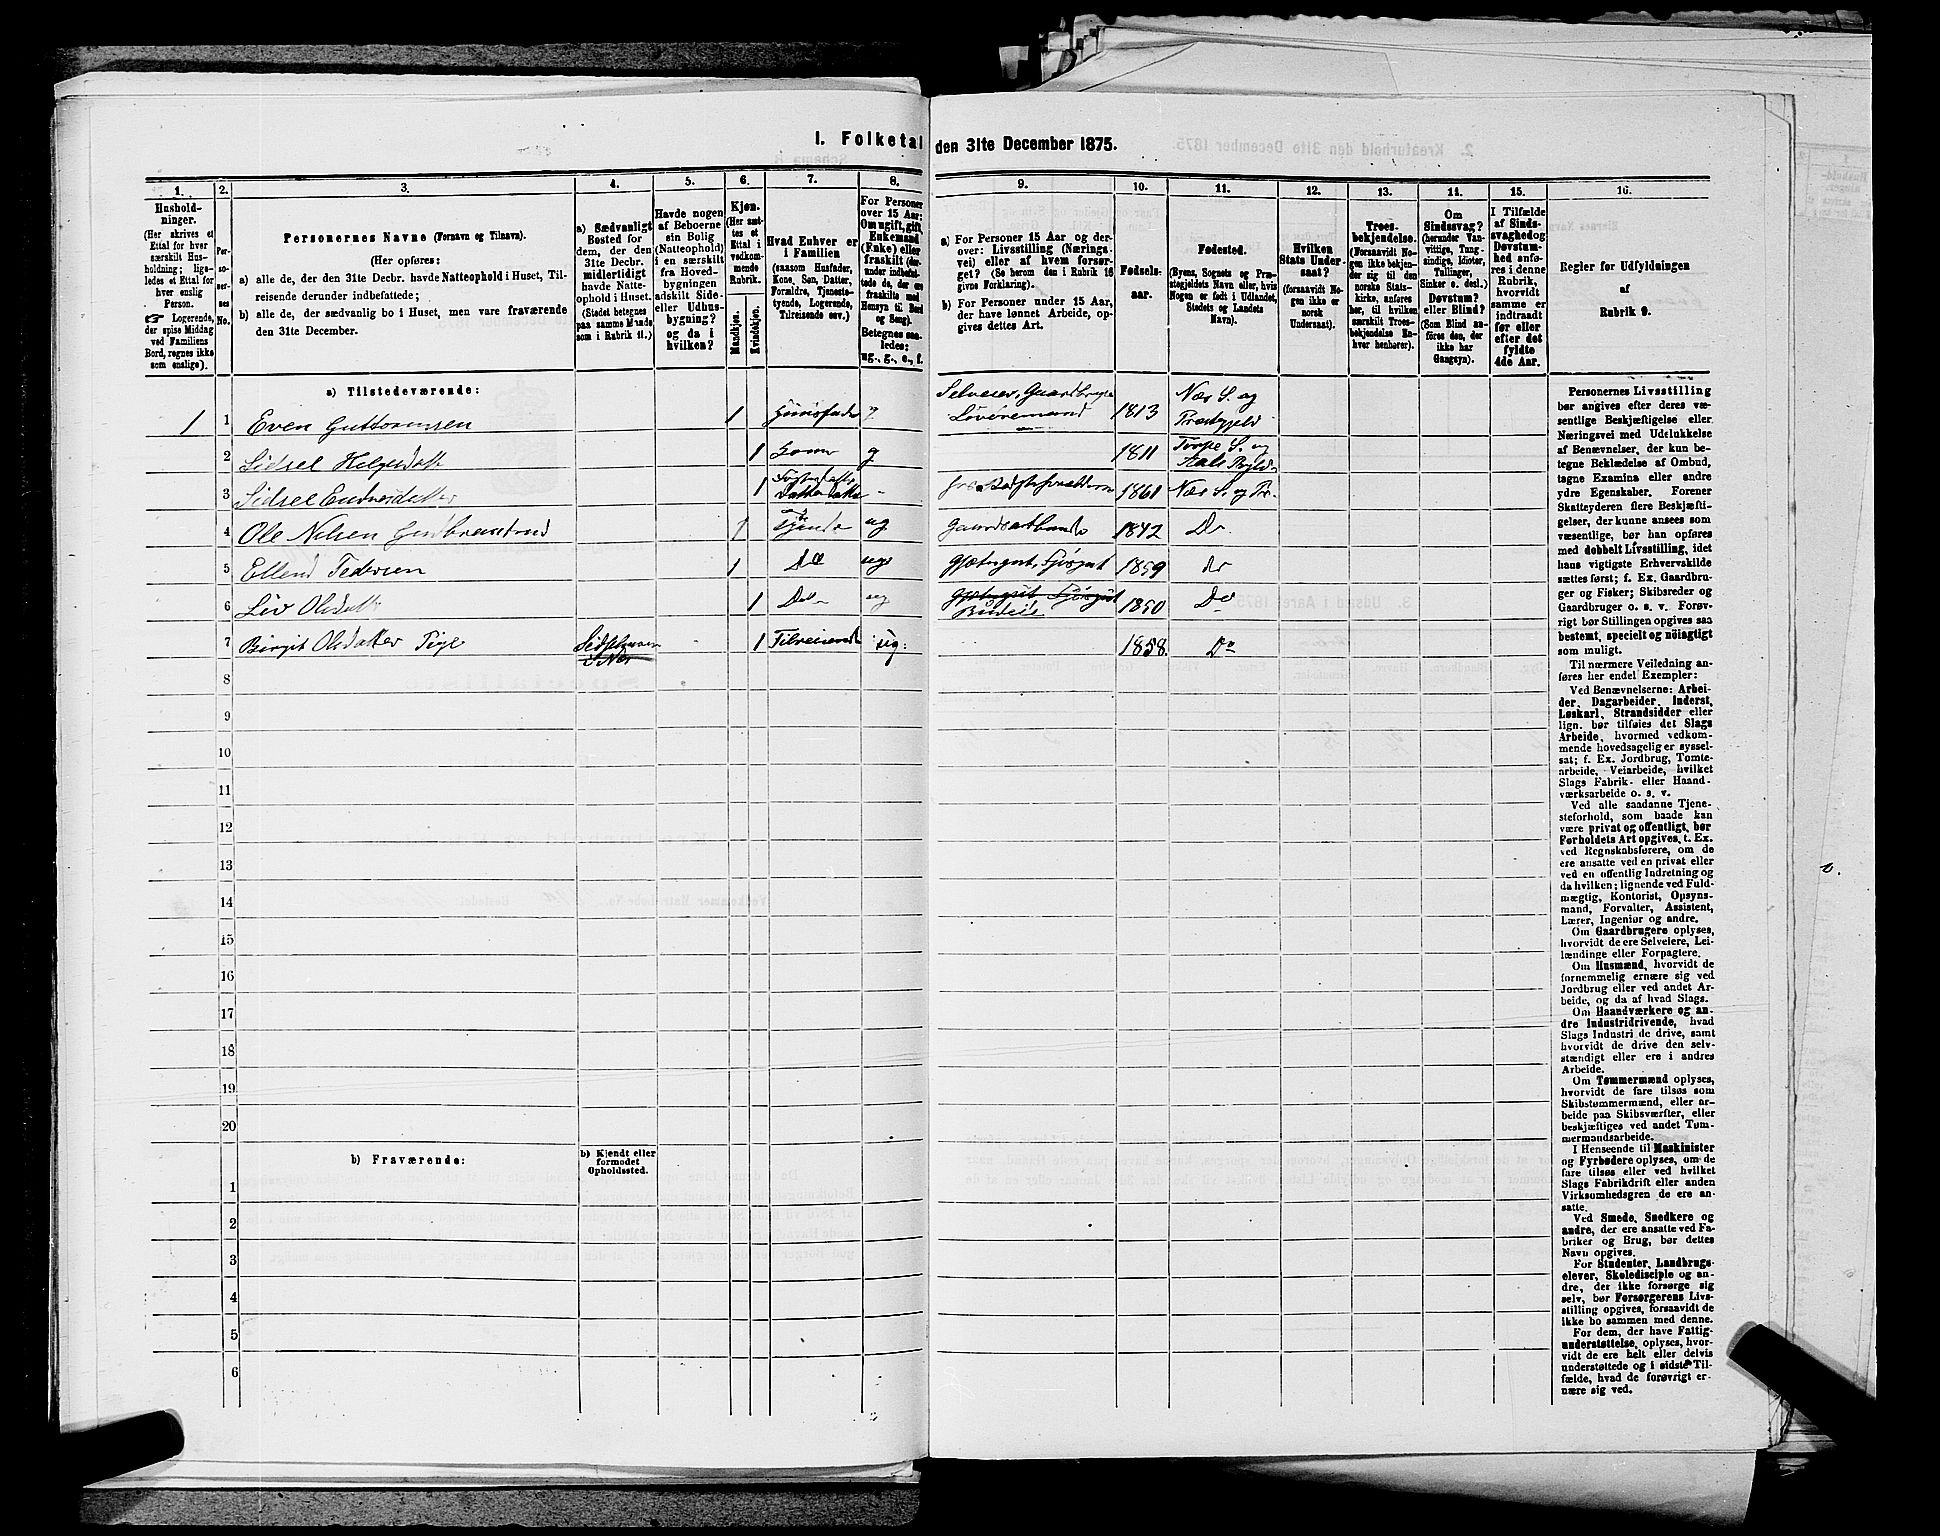 I. Folketal den 31te December 1875.
1. 2. 3. 4. 5. 6. 7. 8. 9. 10. 11. 12. 13. 14. 15. 16.
Hushold-
ninger.
(Her skrives et
Ettal for hver
særskilt Hus-
holdning; lige-
ledes et Ettal for
hver enslig
Person.
☞ Logerende,
der spise Middag
ved Familiens
Bord, regnes ikke
som enslige).
Per-
so-
ner-
nes
No.
Personernes Navne (Fornavn og Tilnavn).
(Her opføres:
a) alle de, der den 31te Decbr. havde Natteophold i Huset, Til-
reisende derunder indbefattede;
b) alle de, der sædvanlig bo i Huset, men vare fraværende
den 31te December.
a) Sædvanligt
Bosted for
dem, der den
31te Decbr.
midlertidigt
havde Natte-
ophold i Huset.
(Stedet betegnes
paa samme Maade
som i Rubrik 11.)
Havde nogen
af Beboerne
sin Bolig
(Natteophold)
i en særskilt
fra Hoved-
bygningen
adskilt Side-
eller Udhus-
bygning?
og da i
hvilken?
Kjøn.
(Her sæt-
tes et
Ettal i
vedkom-
mende
Rubrik.
Mandkjøn.
Kvindekjøn.
Hvad Enhver er
i Familien
(saasom Husfader,
Kone, Søn, Datter,
Forældre, Tjeneste-
tyende, Logerende,
Tilreisende osv.)
For Personer
over 15 Aar:
Om ugift, gift,
Enkemand
(Enke) eller
fraskilt
Betegnes saa-
ledes:
ug., g., e., f.
a) For Personer 15 Aar og der-
over: Livsstilling (Nærings-
vei) eller af hvem forsør-
get? (Se herom den i Rubrik 16
givne Forklaring).
b) For Personer under 15 Aar,
der have lønnet Arbeide, op-
gives dettes Art.
Fødsels-
aar.
Fødested.
(Byens, Sognets og Præ-
stegjeldets Navn eller, hvis
Nogen er født i Udlandet,
Stedets og Landets
Navn).
Hvilken
Stats Under-
saat?
(forsaavidt No-
gen ikke er
norsk
Undersaat).
Troes-
bekjendelse.
(Forsaavidt No-
gen ikke bekjen-
der sig til den
norske Stats-
kirke, anføres
her, til hvilken
særskilt Troes-
bekjendelse En-
hver henhører).
Om
Sindssvag?
(herunder Van-
vittige, Tung-
sindige, Idioter,
Tullinger,
Sinker o. desl.)
Døvstum?
eller Blind?
(Som Blind an-
føres den, der
ikke har
Gangsyn).
I Tilfælde
af Sinds-
svaghed og
Døvstum-
hed anfø-
res i denne
Rubrik,
hvorvidt
samme er
indtraadt
før eller
efter det
fyldte
4de Aar.
Regler for Udfyldningen
af
Rubrik 9.
a) Tilstedeværende:
1 1 Even Guttormsen 1 Huusfader g Selveier, Gaardbruger 1813 Næs S. og
Præstegjeld
2 Sidsel Helgesdatter 1 Kone g 1811 Torpe S. og
Aals
3 Sidsel 1 Datter - 1861 Næs S. og Pr.
4 Ole Nilsen 1 ug 1842 Do
5 Ellend Pedersen 1 Do ug 1859 do
6 Liv Olsdatter 1 Do ug Budeie 1850 Do
7 Birgit Olsdatter 1 Tilreisende ug: 1858. Do
8
9
10
11
12
13
14
15
16
17
18
19
20
b) Fraværende:
b) Kjendt eller
formodet
Opholdssted.
1
2
3
4
5
6
Personernes Livsstilling
bør angives efter deres væ-
sentlige Beskjæftigelse eller
Næringsvei med Udelukkelse
af Benævnelser, der kun be-
tegne Beklædelse af Ombud,
tagne Examina eller andre
ydre Egenskaber. Forener
Skatteyderen flere Beskjæfti-
gelser, der kunne ansees som
væsentlige, bør han opføres
med dobbelt Livsstilling, idet
hans vigtigste Erhvervskilde
sættes først; f. Ex. Gaardbru-
ger og Fisker; Skibsreder og
Gaardbruger o. s. v. Forøv-
rigt bør Stillingen opgives saa
bestemt, specielt og nöiagtigt
som muligt.
Til nærmere Veiledning an-
føres her endel Exempler:
Ved Benævnelserne: Arbei-
der, Dagarbeider, Inderst,
Løskarl, Strandsidder eller
lign. bør tilføies det Slags
Arbeide, hvormed vedkom-
mende hovedsagelig er syssel-
sat; f. Ex. Jordbrug, Tomte-
arbeide, Veiarbeide, hvilket
Slags Fabrik- eller Haand-
værksarbeide o. s. v.
Ved alle saadanne Tjene-
steforhold, som baade kan
være privat og offentligt, bør
Forholdets Art opgives, t. Ex.
ved Regnskabsførere, om de
ere ansatte ved en privat eller
ved en offentlig Indretning og
da hvilken; lignende ved Fuld-
mægtig, Kontorist, Opsyns-
mand, Forvalter, Assistent,
Lærer, Ingeniør og andre.
Om Gaardbrugere oplyses,
hvorvidt de ere Selveiere, Lei-
lændinge eller Forpagtere.
Om Husmænd, hvorvidt de
fornemmelig ernære sig ved
Jordbrug eller ved andet Ar-
beide, og da af hvad Slags.
Om Haandværkere og an-
dre Industridrivende, hvad
Slags Industri de drive, samt
hvorvidt de drive den selv-
stændigt eller ere i andres
Arbeide.
Om Tømmermænd oplyses,
hvorvidt de fare tilsøs som
Skibstømmermænd, eller ar-
beide paa Skibsværfter, eller
beskjæftiges ved andet Tøm-
mermandsarbeide.
I Henseende til Maskinister
og Fyrbødere oplyses, om de
fare tilsøs eller ved hvilket
Slags Fabrikdrift eller anden
Virksomhedsgren de ere an-
satte.
Ved Smede, Snedkere og
andre, der ere ansatte ved Fa-
briker og Brug, bør dettes
Navn opgives.
For Studenter, Landbrugs-
elever, Skoledisciple og an-
dre, der ikke forsørge sig
selv, bør Forsørgerens Livs-
stilling opgives, forsaavidt de
ikke bo sammen med denne.
For dem, der have Fattig-
understøttelse, oplyses, hvor-
vidt de ere helt eller delvis
understøttede og i sidste Til-
fælde, hvad de forøvrigt er-
nære sig ved.